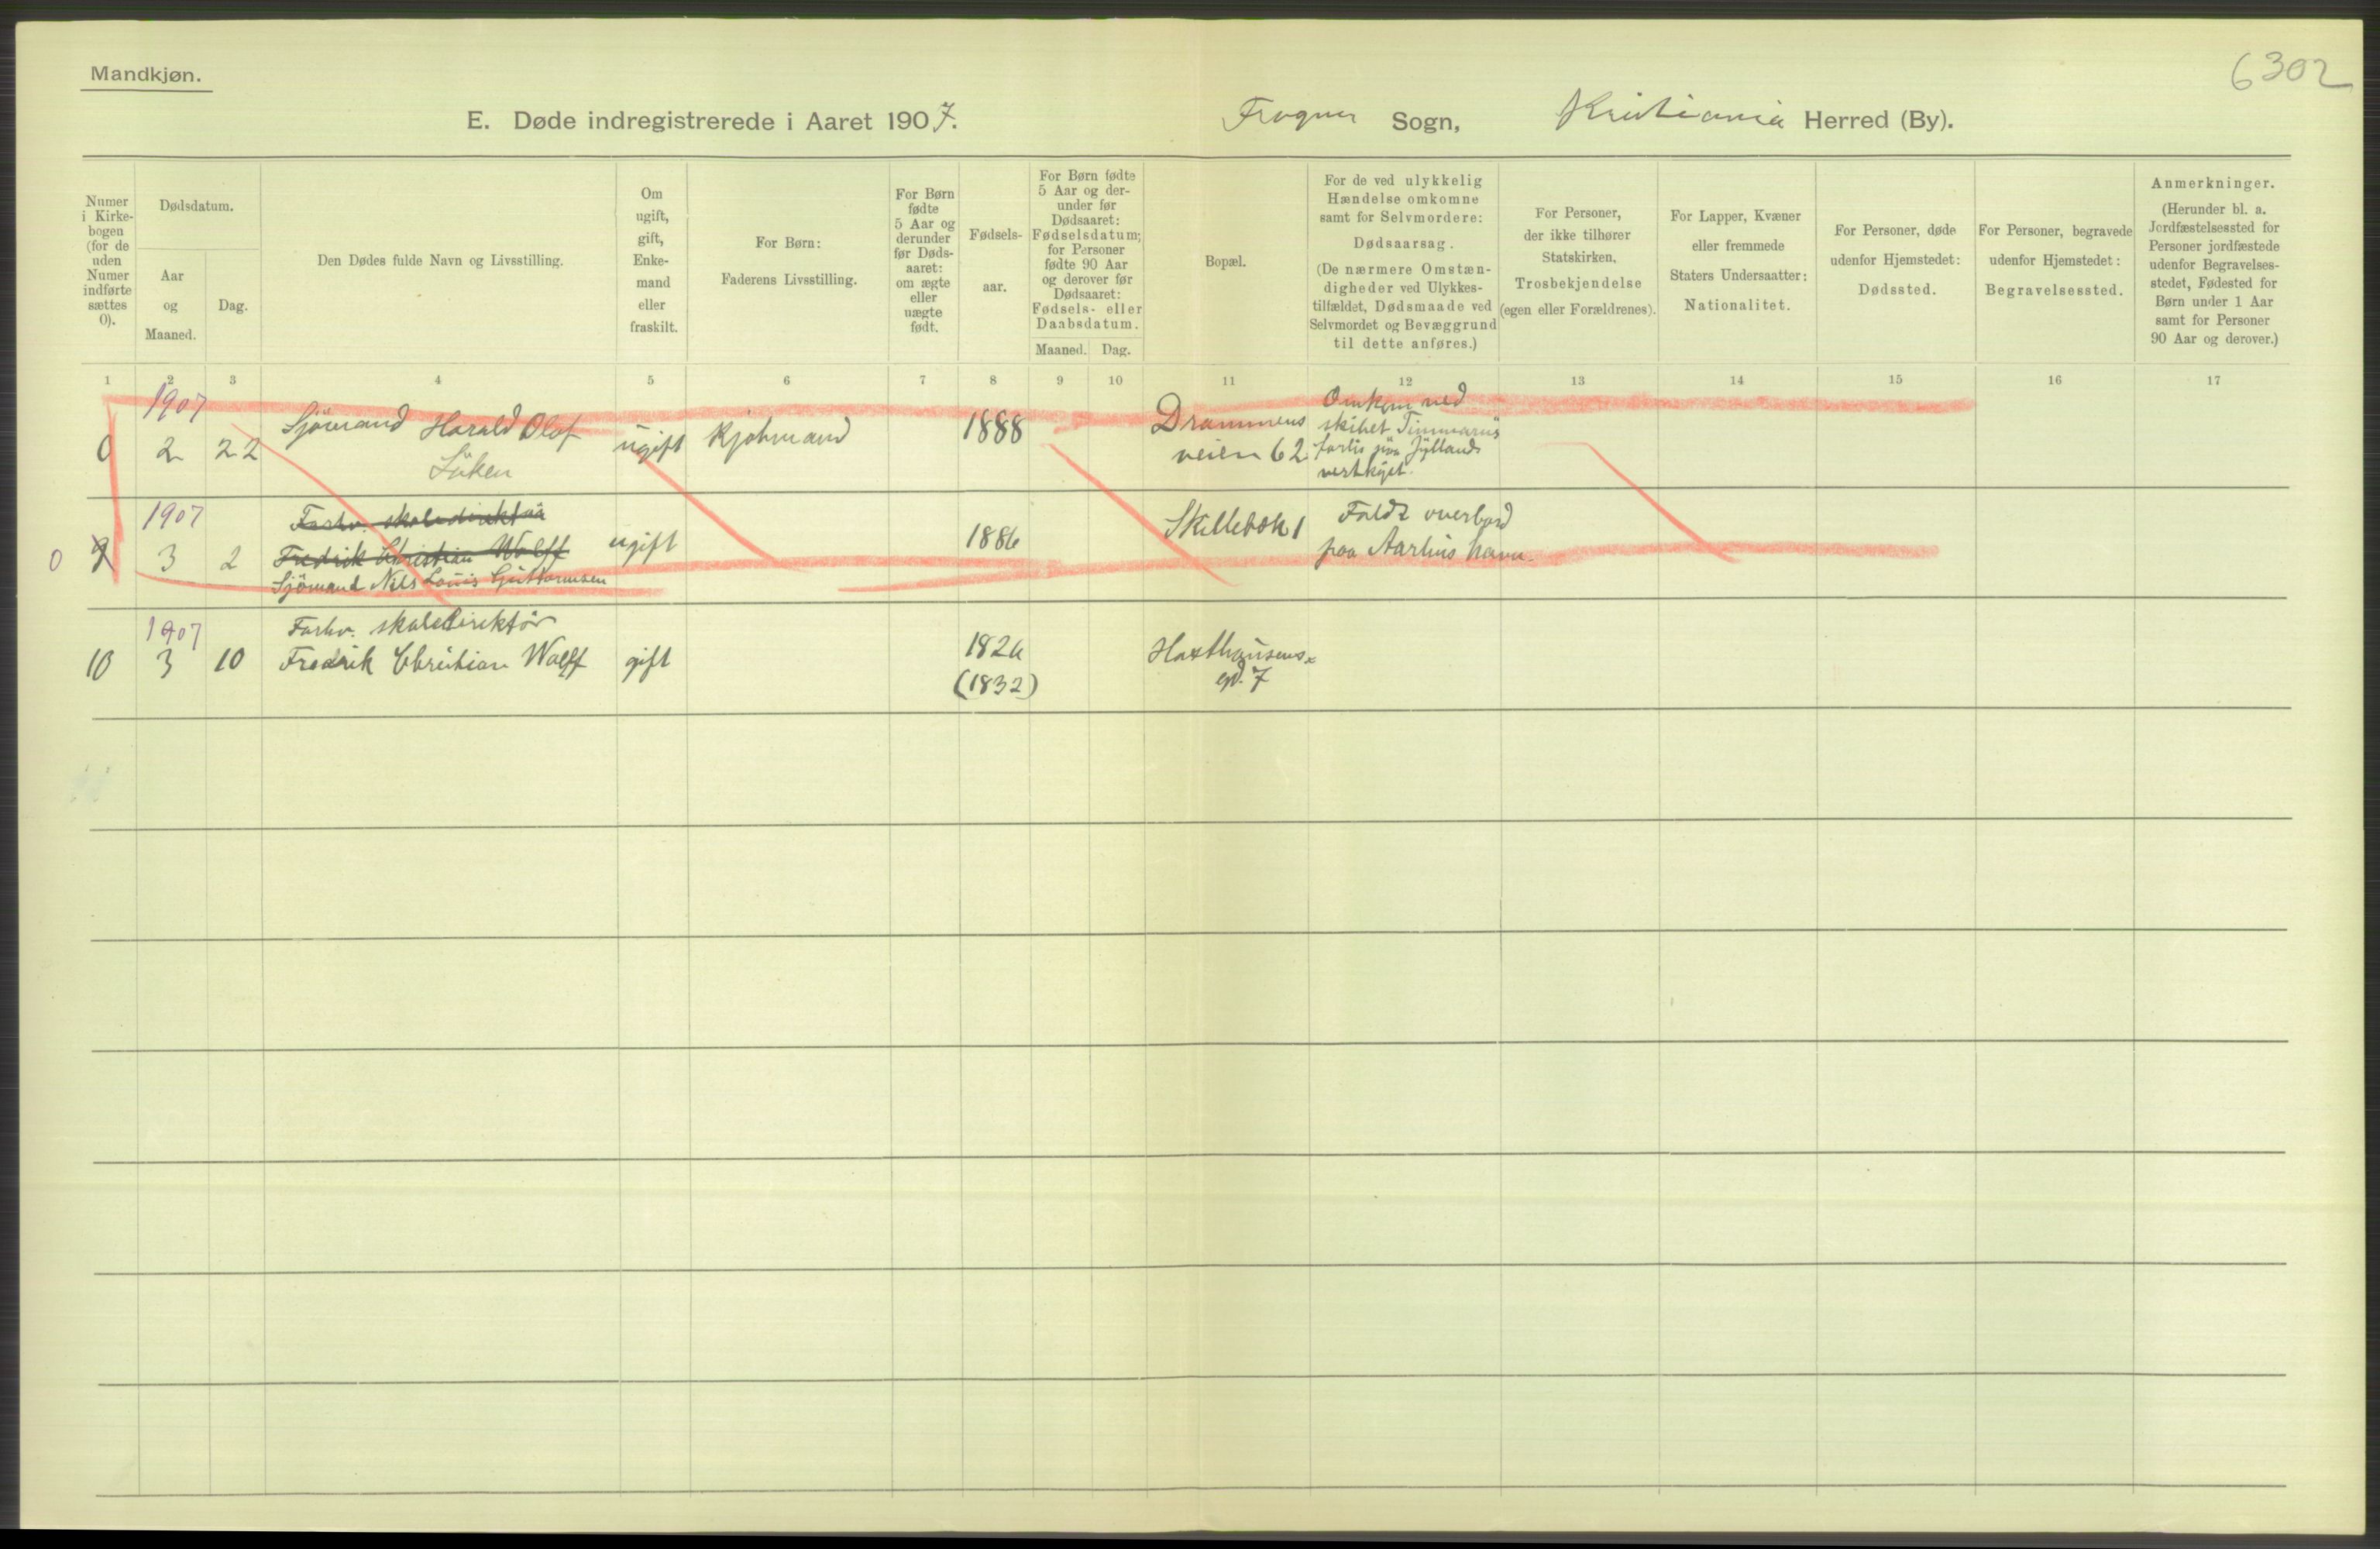 Mandkjøn.
6302
E. Døde indregistrerede i Aaret 1907. Frogner Sogn, Kristiania Herred (By).
Numer
i Kirke-
bogen
(for de
uden
Numer
indførte
sættes
0).
Dødsdatum.
Aar
og
Maaned.
Dag.
Den Dødes fulde Navn og Livsstilling.
Om
ugift,
gift,
Enke-
mand
eller
fraskilt.
For Børn:
Faderens Livsstilling.
For Børn
fødte
5 Aar og
derunder
før Døds-
aaret:
om ægte
eller
uægte
født.
Fødsels-
aar.
For Børn fødte
5 Aar og der-
under før
Dødsaaret:
Fødselsdatum;
for Personer
fødte 90 Aar
og derover før
Dødsaaret:
Fødsels- eller
Daabsdatum.
Maaned. Dag.
Bopæl.
For de ved ulykkelig
Hændelse omkomne
samt for Selvmordere:
Dødsaarsag.
(De nærmere Omstæn-
digheder ved Ulykkes-
tilfældet, Dødsmaade ved
Selvmordet og Bevæggrund
til dette anføres.)
For Personer,
der ikke tilhører
Statskirken,
Trosbekjendelse
(egen eller Forældrenes).
For Lapper, Kvæner
eller fremmede
Staters Undersaatter:
Nationalitet.
For Personer, døde
udenfor Hjemstedet:
Dødssted.
For Personer, begravede
udenfor Hjemstedet:
Begravelsessted.
Anmerkninger.
(Herunder bl. a.
Jordfæstelsessted for
Personer jordfæstede
udenfor Begravelses-
stedet, Fødested for
Børn under 1 Aar
samt for Personer
90 Aar og derover.)
1 2 3 4 5 6 7 8 9 10 11 12 13 14 15 16 17
1907
0 2 22
Sjömand Harald Olof
Lüken
ugift
Kjøbmand
1888
Drammens
veien 62
Omkom ved
skibet
forlis paa Jyllands
vestkyst.
1907
0 9 3 2
Forhv. skoledirektör
Fredrik Christian Wolff
Sjömand Nils Louis Guttormsen
ugift
1886
Skillebæk 1
Faldt overbord
paa Aarhus havn.
1907
10 3 10
Forhv. skoledirektör
Fredrik Christian Wolff
gift
1826
(1832)
Haxthausens
gd. 7